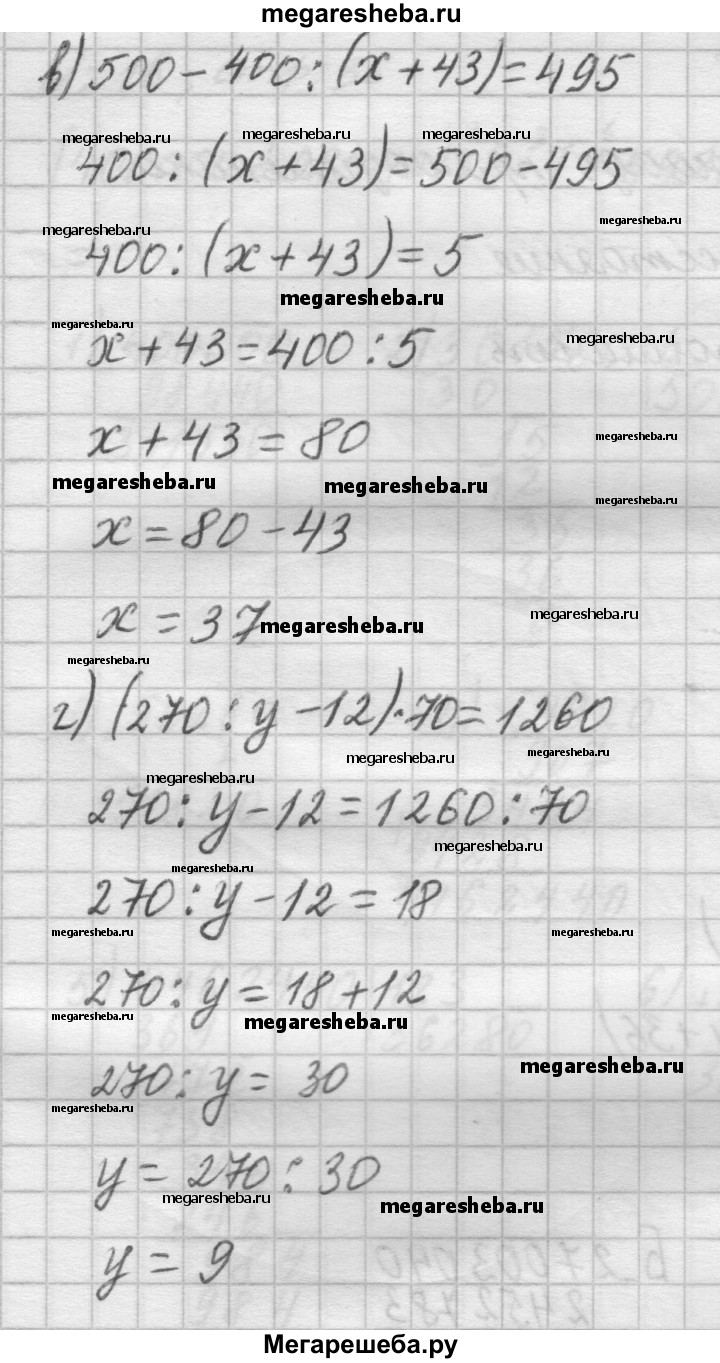 megaresheba.ru
в) 500 - 400 : (x + 43) = 495
megaresheba.ru megaresheba.ru megaresheba.ru
400 : (x + 43) = 500 - 495
megaresheba.ru
megaresheba.ru
400 : (x + 43) = 5
megaresheba.ru
megaresheba.ru
x + 43 = 400 : 5
megaresheba.ru
x + 43 = 80
megaresheba.ru
megaresheba.ru megaresheba.ru
megaresheba.ru
x = 80 - 43
x = 37
megaresheba.ru
megaresheba.ru
megaresheba.ru
г) (270 : y - 12) · 70 = 1260
megaresheba.ru
megaresheba.ru
megaresheba.ru
270 : y - 12 = 1260 : 70
megaresheba.ru
megaresheba.ru
270 : y - 12 = 18
megaresheba.ru megaresheba.ru
270 : y = 18 + 12
megaresheba.ru
megaresheba.ru
megaresheba.ru
270 : y = 30
megaresheba.ru
y = 270 : 30
megaresheba.ru
megaresheba.ru
y = 9
Мегарешеба.ру